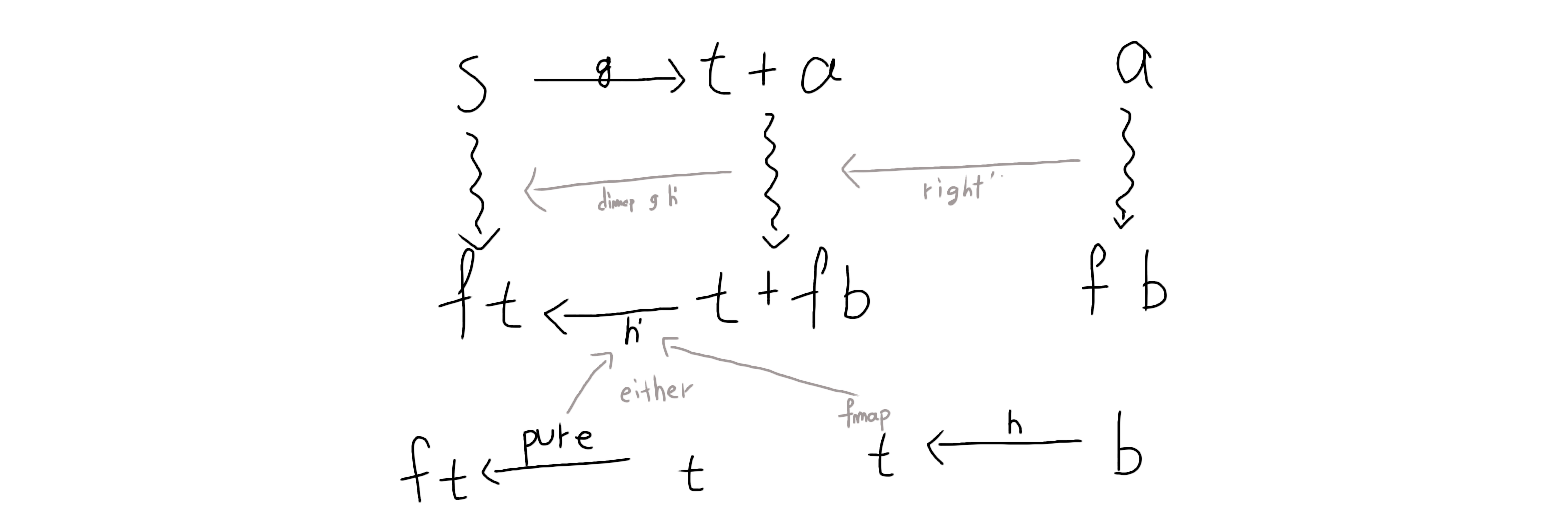 s g t + a a
dimap g h' right'
f t h' t + f b f b
either fmap
f t pure t t h b